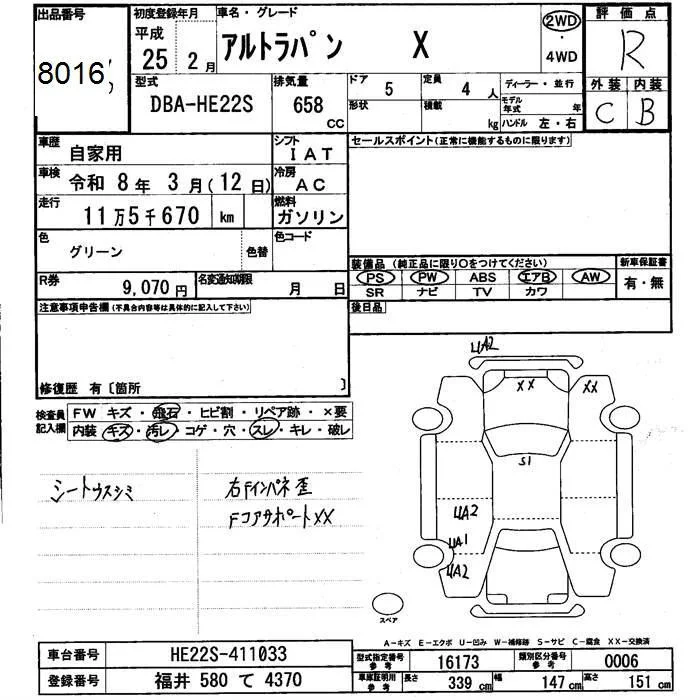 出品番号 初度登録年月 車名・グレード 2WD ・ 4WD 評価点
8016 平成 25年 2月 アルトラパン X R
型式 排気量 ドア 定員 ディーラー・並行 外装 内装
DBA-HE22S 658 CC 5 4人 形状 積載 kg モデル年式 年 ハンドル 左・右 C B
車歴 自家用 シフト IAT セールスポイント(正常に機能するものに限ります)
車検 令和 8年 3月(12日) 冷房 AC
走行 11万5千670 km 燃料 ガソリン
色 グリーン 色替 色コード
装備品(純正品に限り○をつけてください) 新車保証書
PS PW ABS エアB AW 有・無
SR ナビ TV カワ
R券 9,070円 名変通知期限 月 日
注意事項申告欄(不具合内容等は具体的に記入して下さい) 後日品
修復歴 有〔箇所 〕
検査員記入欄 FW キズ・飛石・ヒビ割・リペア跡・×要
内装 キズ・汚レ・コゲ・穴・スレ・キレ・破レ
シートウスシミ 右Fインパネ歪
FコアサポートXX
UA2
XX XX
S1
UA2
UA1
UA2
スペア
A-キズ E-エクボ U-凹み W-補修跡 S-サビ C-腐食 XX-交換済
車台番号 HE22S-411033 型式指定番号 参考 16173 類別区分番号 参考 0006
登録番号 福井 580 て 4370 車庫証明用 参考 長さ 339 cm 幅 147 cm 高さ 151 cm